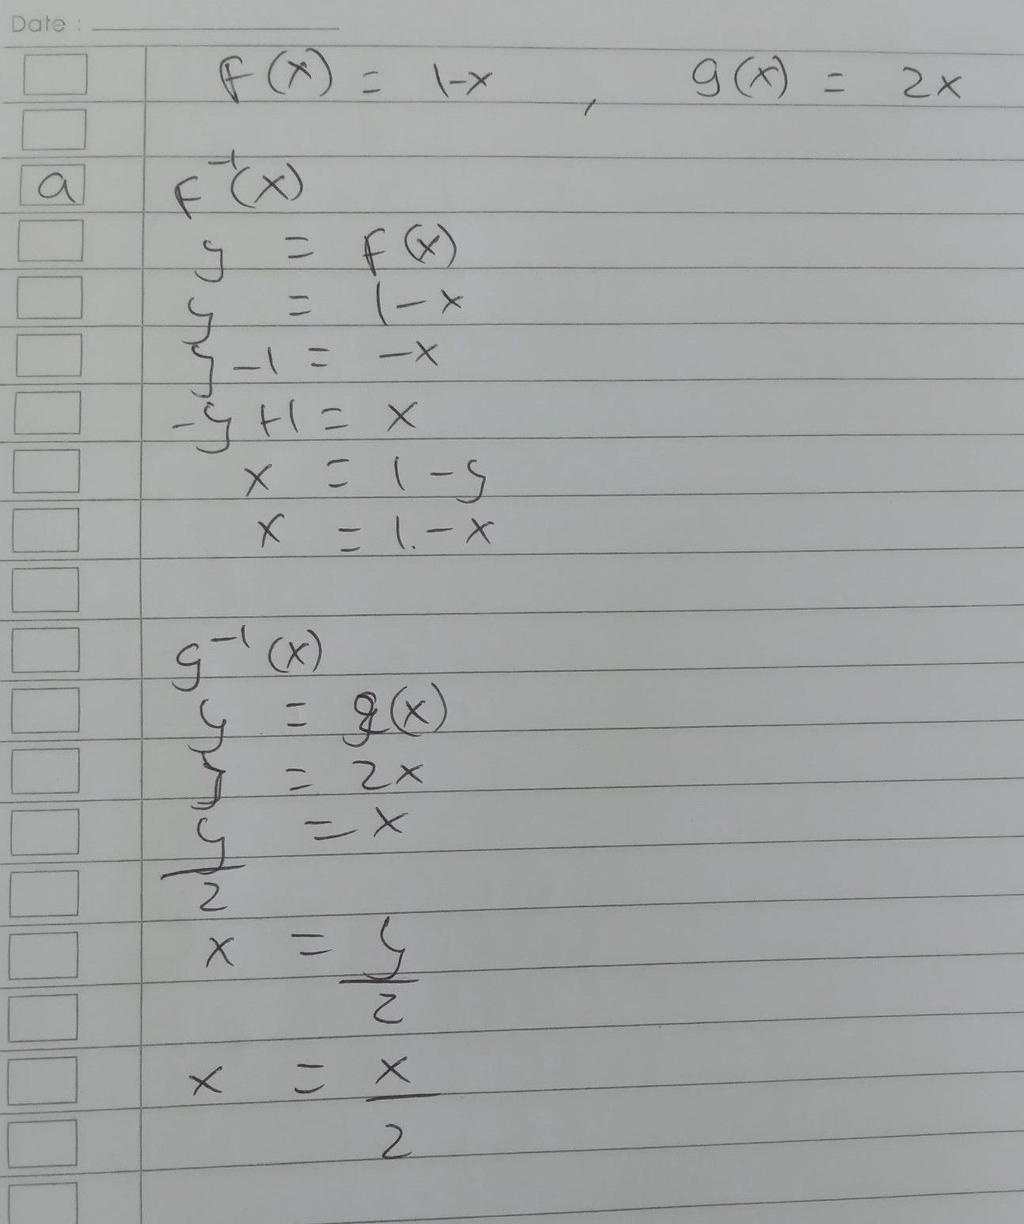 Date :
F(x) = 1-x , g(x) = 2x
a F⁻¹(x)
y = F(x)
y = 1-x
y-1 = -x
-y+1 = x
x = 1-y
x = 1.-x
g⁻¹(x)
y = g(x)
y = 2x
y/2 = x
x = y/2
x = x/2